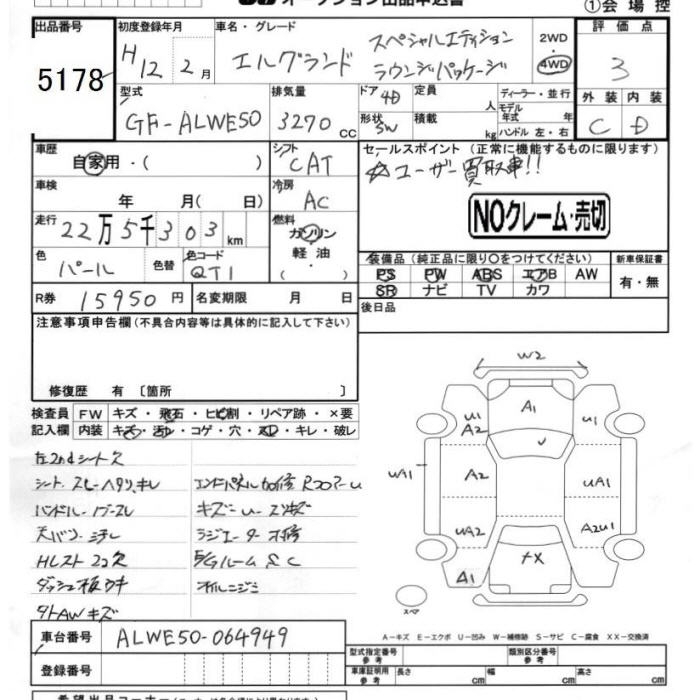 ①会場控
出品番号
5178
初度登録年月
H12年2月
車名・グレード
エルグランド
スペシャルエディション
ラウンジパッケージ
2WD
・
4WD
評価点
3
外装 内装
C D
型式
GF-ALWE50
排気量
3270 CC
ドア 4D
形状 SW
定員 人
積載 kg
ディーラー・並行
モデル
年式 年
ハンドル 左・右
車歴
自家用・( )
シフト
CAT
車検
年 月( 日)
冷房
AC
走行
22万5千303km
燃料
ガソリン
軽油・
( )
色
パール
色替
色コード
QT1
R券 15950円
名変期限 月 日
セールスポイント(正常に機能するものに限ります)
☆ユーザー買取車!!
NOクレーム・売切
装備品(純正品に限り○をつけてください)
PS PW ABS エアB AW
SR ナビ TV カワ
新車保証書
有・無
後日品
注意事項申告欄(不具合内容等は具体的に記入して下さい)
修復歴 有 〔箇所 〕
検査員
記入欄
FW キズ・飛石・ヒビ割・リペア跡・×要
内装 キズ・汚レ・コゲ・穴・スレ・キレ・破レ
左2ndシート欠
シート スレ ヘタリ、キレ
ハンドル ノブ スレ
天バリ 汚レ
ラジエーター
オイルニジミ
W2
A1
U1
A2
U1
WA1
A2
UA1
UA2
A2U1
A1
スペア
A-キズ E-エクボ U-凹み W-補修跡 S-サビ C-腐食 XX-交換済
車台番号 ALWE50-064949
登録番号
型式指定番号
参考
類別区分番号
参考
車庫証明用
参考
長さ cm
幅 cm
高さ cm